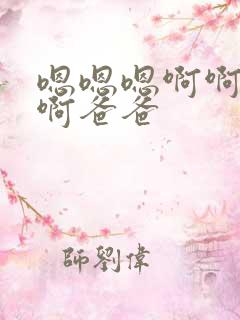 嗯嗯嗯啊啊
啊爸爸
師劉偉